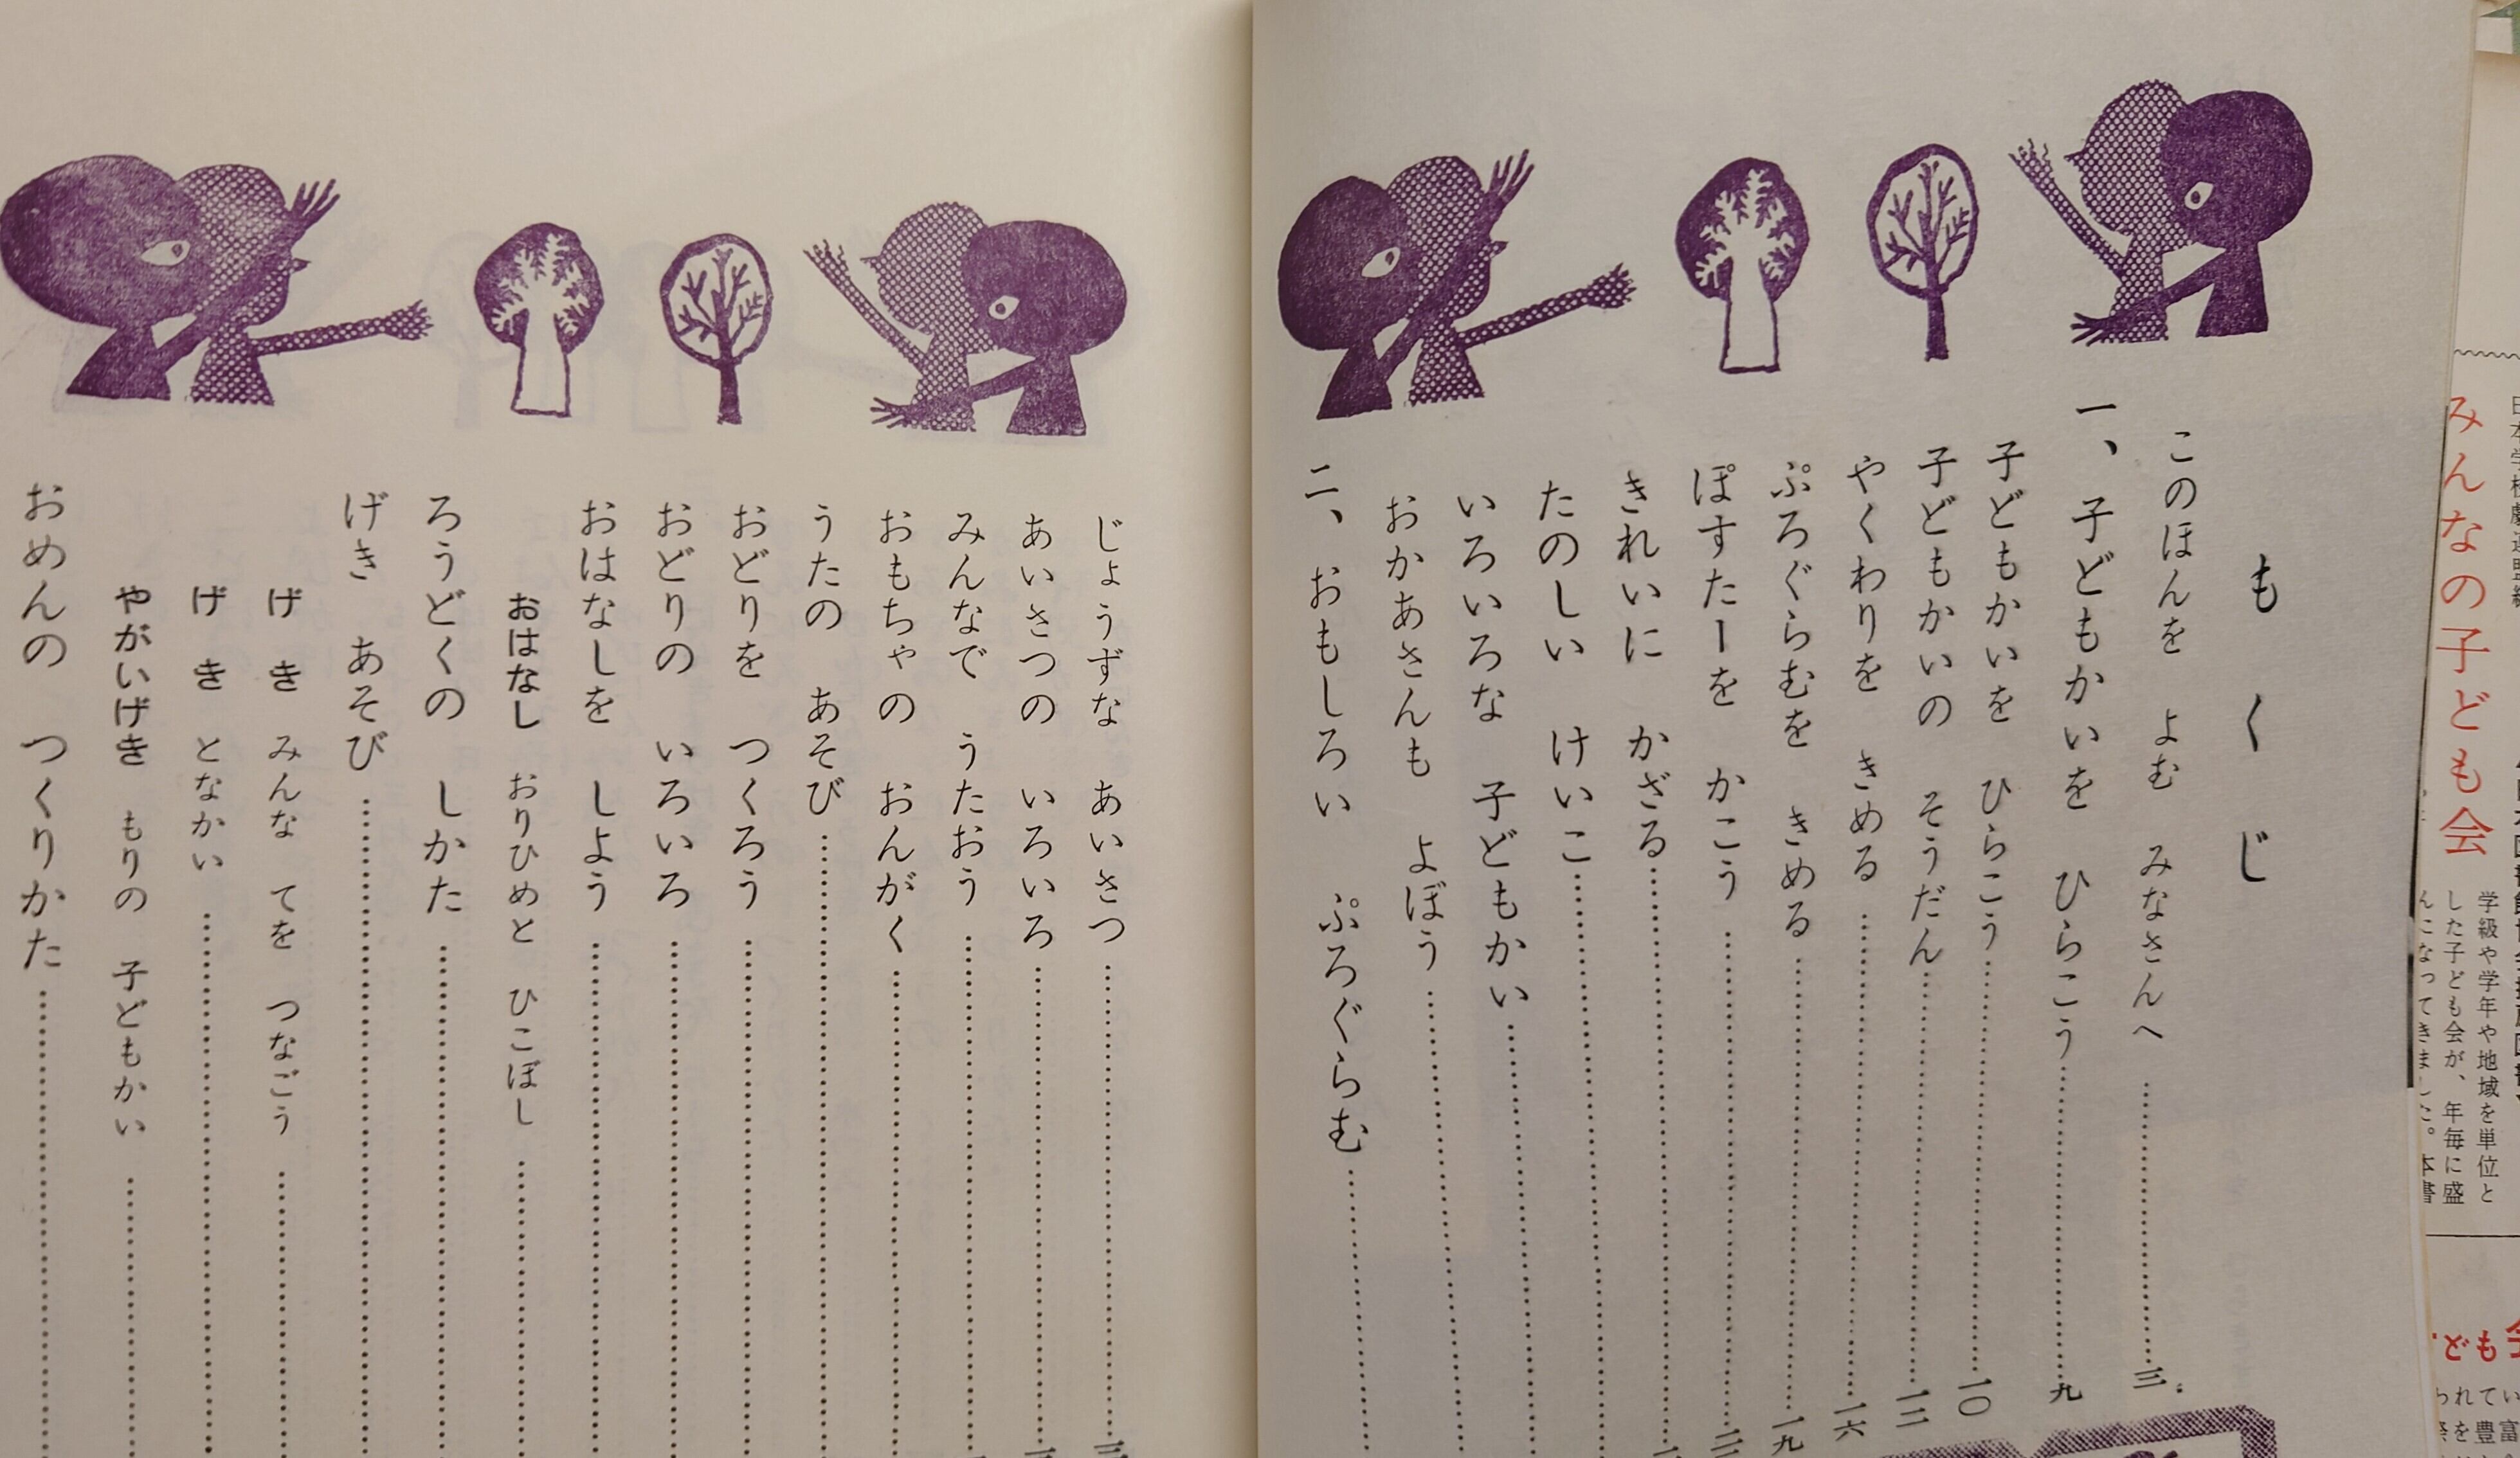 もくじ
このほんを よむ みなさんへ 三
一、子どもかいを ひらこう 九
子どもかいを ひらこう 一〇
子どもかいの そうだん 一二
やくわりを きめる 一六
ぷろぐらむを きめる 一九
ぽすたーを かこう
きれいに かざる
たのしい けいこ
いろいろな 子どもかい
おかあさんも よぼう
二、おもしろい ぷろぐらむ
じょうずな あいさつ
あいさつの いろいろ
みんなで うたおう
おもちゃの おんがく
うたの あそび
おどりを つくろう
おどりの いろいろ
おはなしを しよう
おはなし おりひめと ひこぼし
ろうどくの しかた
げき あそび
げき みんな てを つなごう
げき となかい
やがいげき もりの 子どもかい
おめんの つくりかた
みんなの子ども会
学級や学年や地域を単位と
した子ども会が、年毎に盛
んになってきました。本書